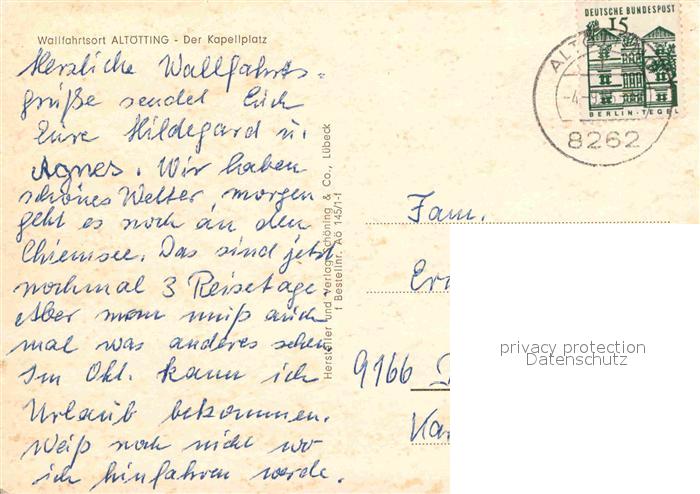 Wallfahrtsort ALTÖTTING - Der Kapellplatz
Herzliche Wallfahrts-
grüße sendet Euch
Eure Hildegard u.
Agnes. Wir haben
schönes Wetter, morgen
geht es noch an den
Chiemsee. Das sind jetzt
nochmal 3 Reisetage.
Aber man muß auch
mal was anderes sehen
Im Okt. kann ich
Urlaub bekommen.
Weiß noch nicht wo
ich hinfahren werde.
Hersteller und Verlag Schöning & Co., Lübeck
f Bestellnr. Aö 145/1-f
DEUTSCHE BUNDESPOST
15
BERLIN-TEGEL
8262
Fam.
9166
privacy protection
Datenschutz